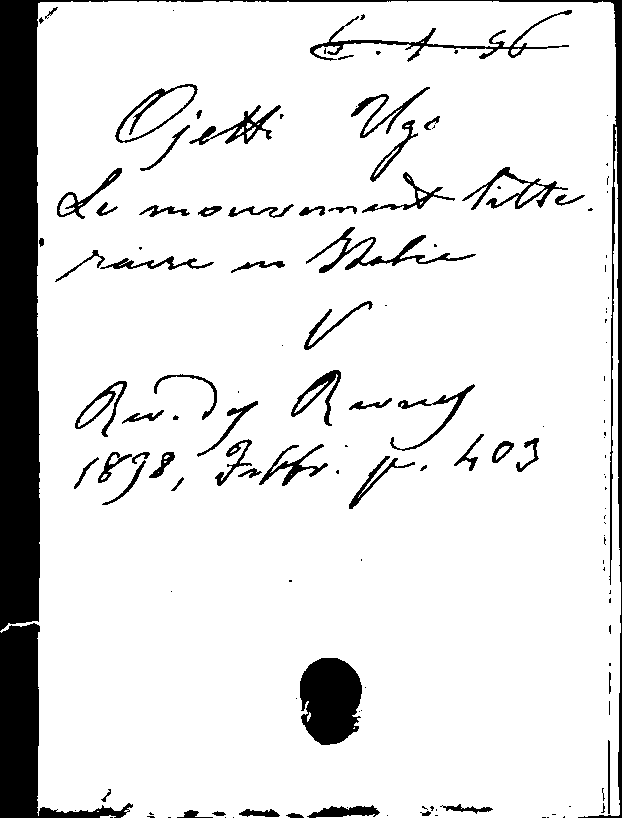 6.1.56
Ojetti Ugo
Le mouvement litte.
raire en Italie
V
Rev. des Revues
1898, Febbr. p. 403